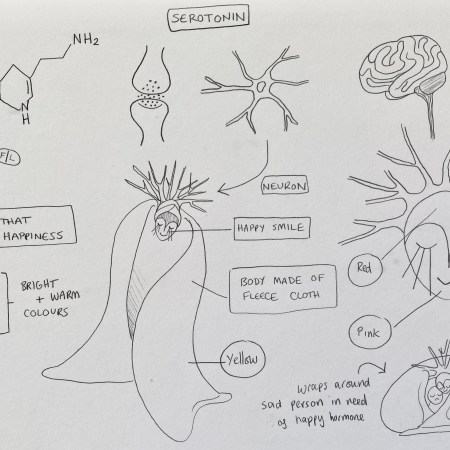 SEROTONIN
NH₂
N
H
F/L
NEURON
THAT
HAPPINESS
HAPPY SMILE
BRIGHT
+ WARM
COLOURS
BODY MADE OF
FLEECE CLOTH
Red
Pink
Yellow
Wraps around
sad person in need
of happy hormone